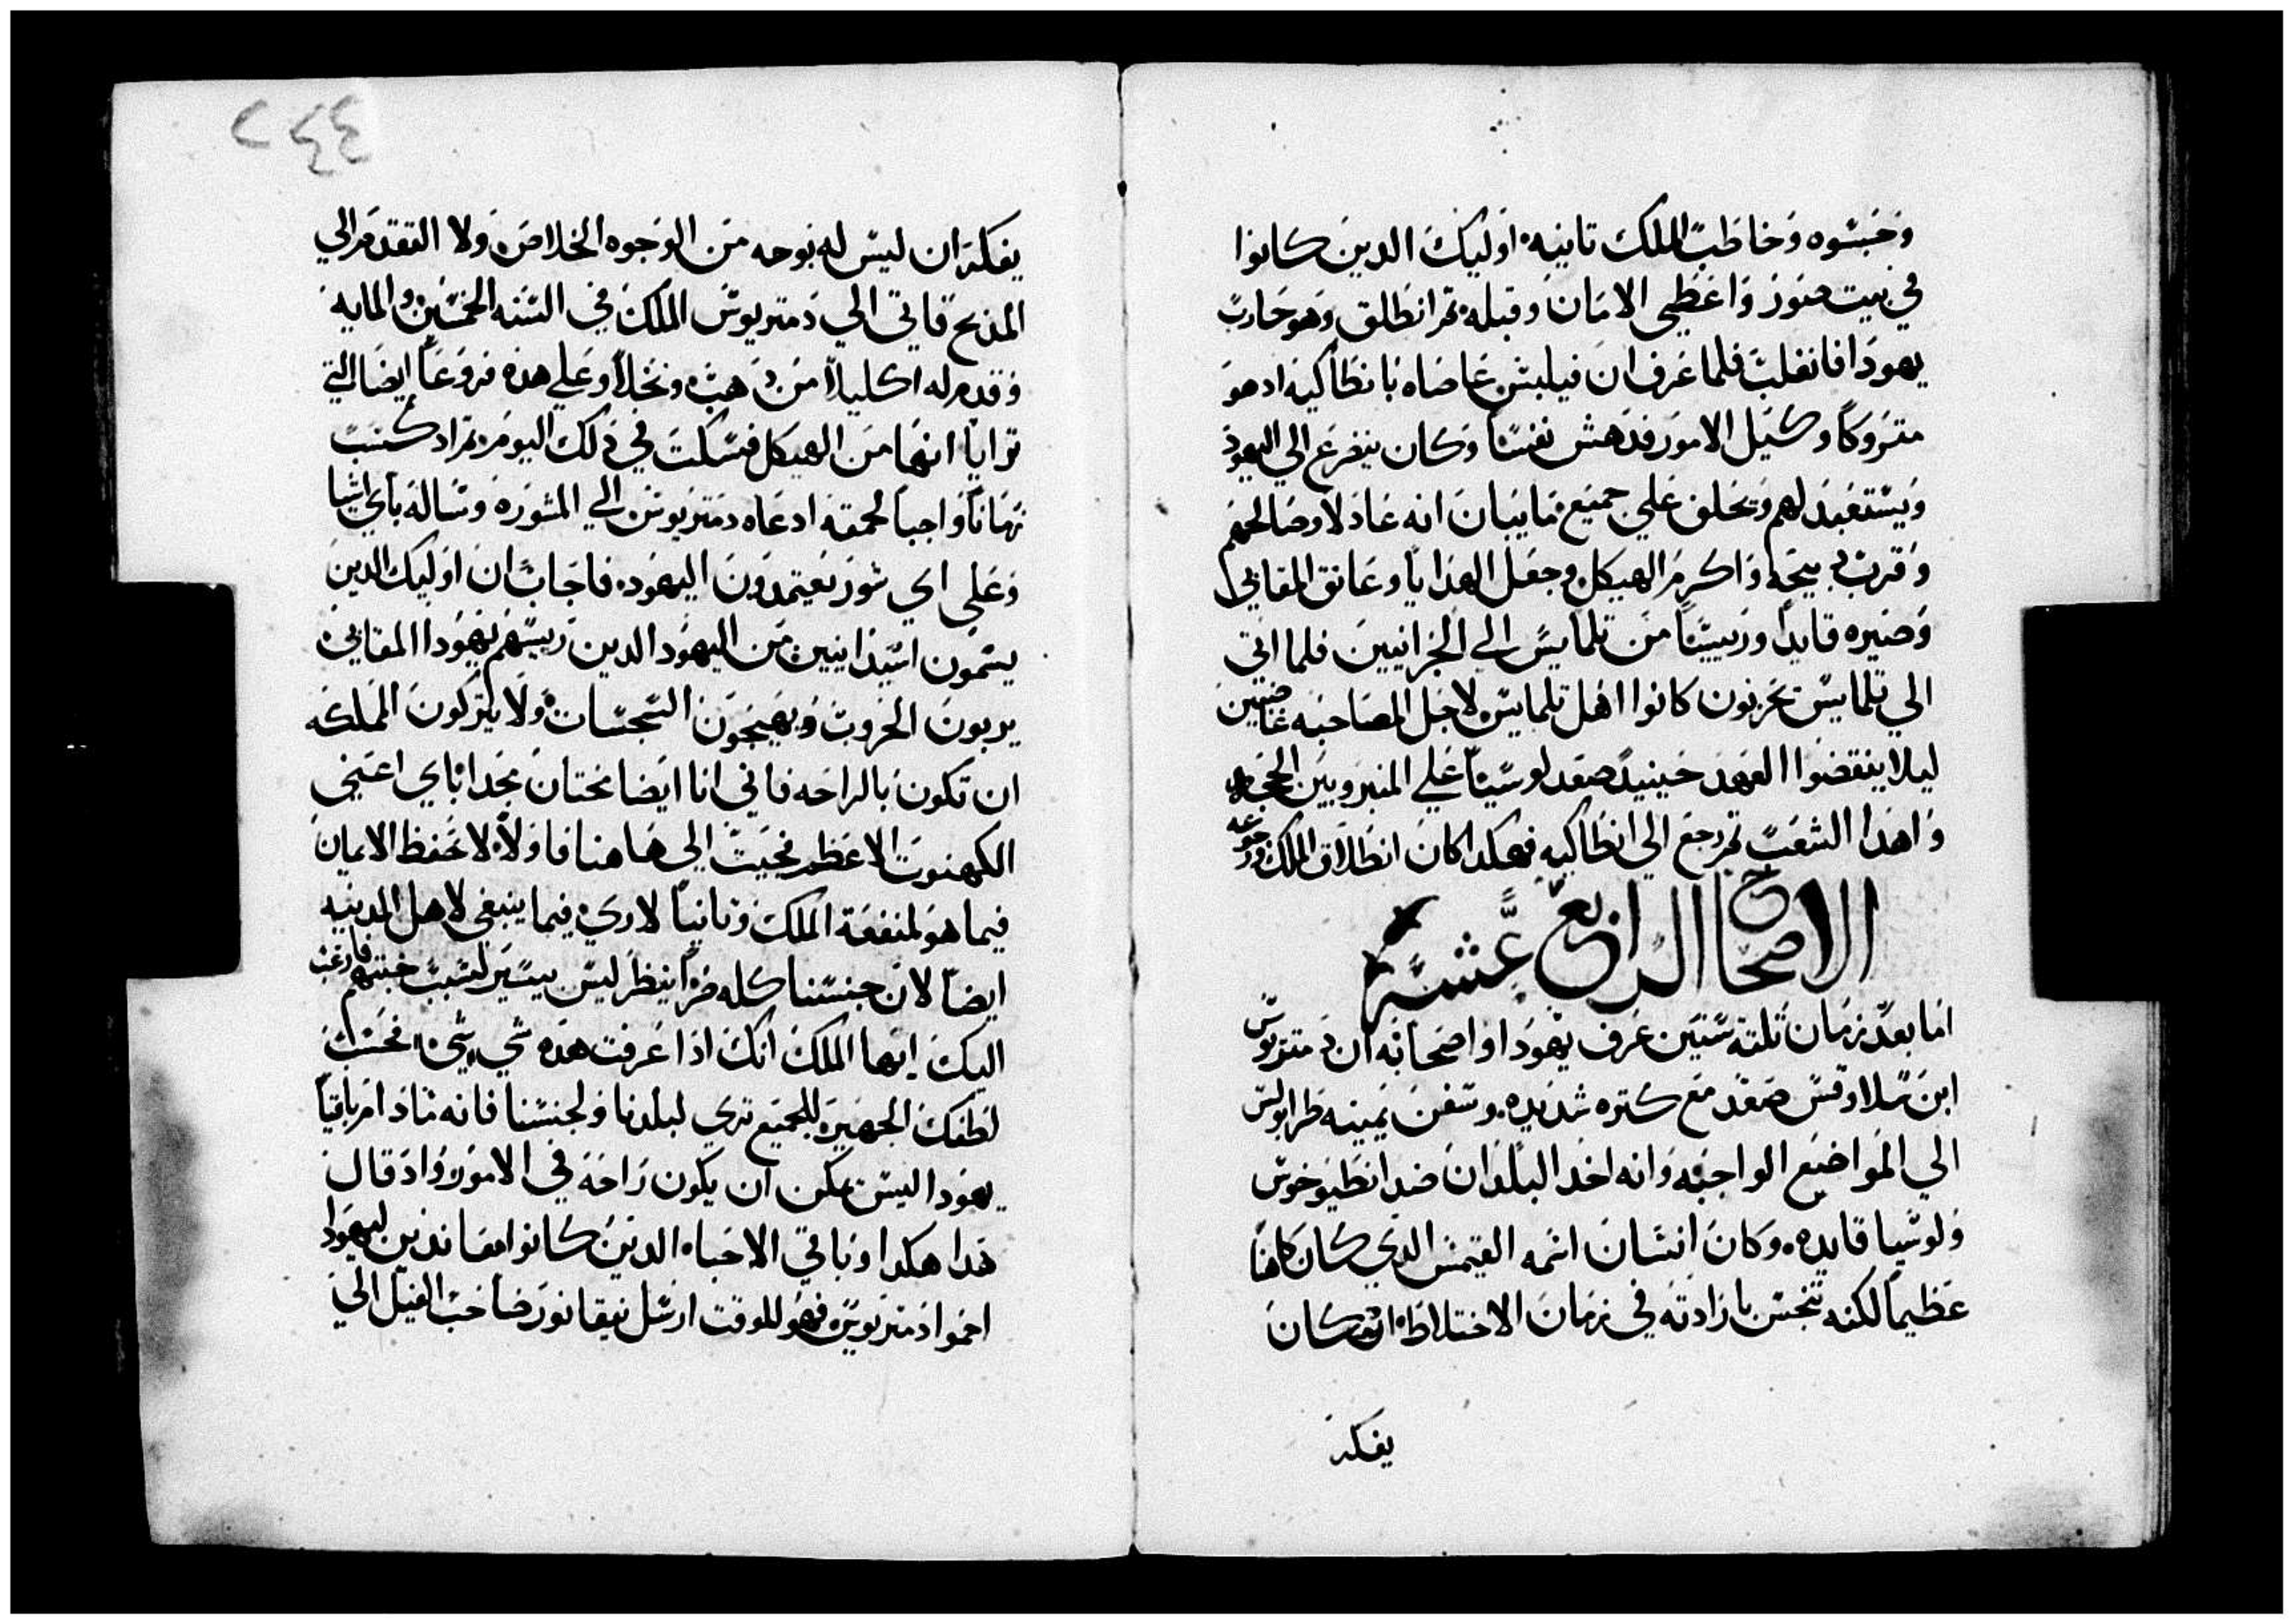 وحبسوه وخاطب الملك تانيه اوليك الدين كانوا
في بيت صور واعطي الامان وقبله تم انطلق وهو حارب
يهودا فانغلب فلما عرف ان فيلبس عاصاه بانطاكيه اد هو
متروكا وكيل الامور فدهش نفسا وكان يتضرع الي اليهود
ويستعبد لهم وتحلف علي جميع ما يبان انه عادلا وصالحهم
وقرب دبيحه واكرم الهيكل وجعل الهدايا وعانق المقابي
وصيره قايدا وربيسا من تلمايس الي الخرانيين فلما اتي
الي تلمايس تحزنون كانوا اهل تلمايس لاجل المصاحبه غاضبين
ليلا ينقضوا العهد حينيد صعد لوسيا علي المنبر وبين الحجه
واهدا الشعب تم رجع الي انطاكيه فهكدا كان انطلاق الملك ورجوعه
الاصحاح الرابع عشر
اما بعد زمان تلتة سنين عرف يهودا واصحابه ان دمتريوس
ابن سلاوقس صعد مع كتره شديده وسفن بمينه طرابولس
الي المواضع الواجبه وانه اخد البلدان ضد انطيوخوس
ولوسيا قايده وكان انسان اسمه القيمس الدي كان كاهنا
عظيما لكنه تنجس بارادته في زمان الاختلاط اد كان
يفكر
٢٤٤
يفكر ان ليس له بوجه من الوجوه الخلاص ولا التقدم الي
المدبح فاتي الي دمتريوس الملك في السنه الخمسين والمايه
وقدم له اكليلا من دهب ونخلا وعلي هده فروعا ايضا التي
ترايا انها من الهيكل فسكت في دلك اليوم تم اد كسب
زمانا واجبا لحمقه ادعاه دمتريوس الي المشوره وساله باي اشيا
وعلي اي شور يعتمدون اليهود فاجاب ان اوليك الدين
يسمون اسيدانيين من اليهود الدين ريسهم يهودا المقابي
يربون الحروب ويهيجون السجسات ولا يتركون المملكه
ان تكون بالراحه فاني انا ايضا مختان مجد اباي اعني
الكهنوت الاعظم فجيت الي هاهنا فاولا لاحفظ الامان
فيما هو لمنفعة الملك وتانيا لاري فيما ينبغي لاهل المدينه
ايضا لان جنسنا كله ليس بيسير لسبب خبتهم فارغب
اليك ايها الملك انك ادا عرفت هده شي بشي فحسب
لطفك الجهير للجميع تري لبلدنا ولجنسنا فانه مادام باقيا
يهودا ليس يمكن ان يكون راحه في الامور واد قال
هدا هكدا وباقي الاحباء الدين كانوا معاندين ليهودا
احموا دمتريوس فهو للوقت ارسل نيقانور صاحب الفيل الي